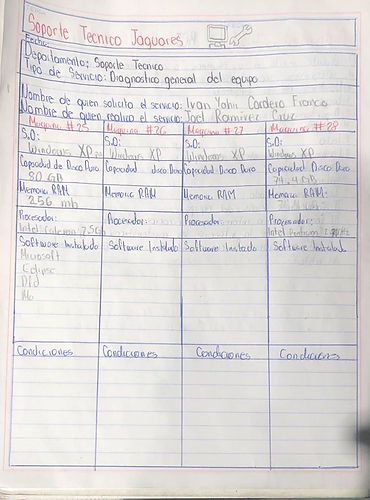 Soporte Tecnico Jaguares
Fecha:
Departamento: Soporte Tecnico
Tipo de Servicio: Diagnostico general del equipo
Nombre de quien solicito el servicio: Ivan Yahir Cordero Franco
Nombre de quien realizo el servicio: Joel Ramirez Cruz
Maquina #25 Maquina #26 Maquina #27 Maquina #28
S.O: S.O: S.O: S.O:
Windows XP Windows XP Windows XP Windows XP
Capacidad de Disco Duro Capacidad disco Duro Capacidad Disco Duro Capacidad Disco Duro
80 GB 74.4 GB
Memoria RAM Memoria RAM Memoria RAM Memoria RAM:
256 mb
Procesador: Procesador: Procesador: Procesador:
Intel Celeron Intel Pentium
Software Instalado Software Instldo Software Instlado Software Instalado
Microsoft
Eclipse
Condiciones Condiciones Condiciones Condiciones